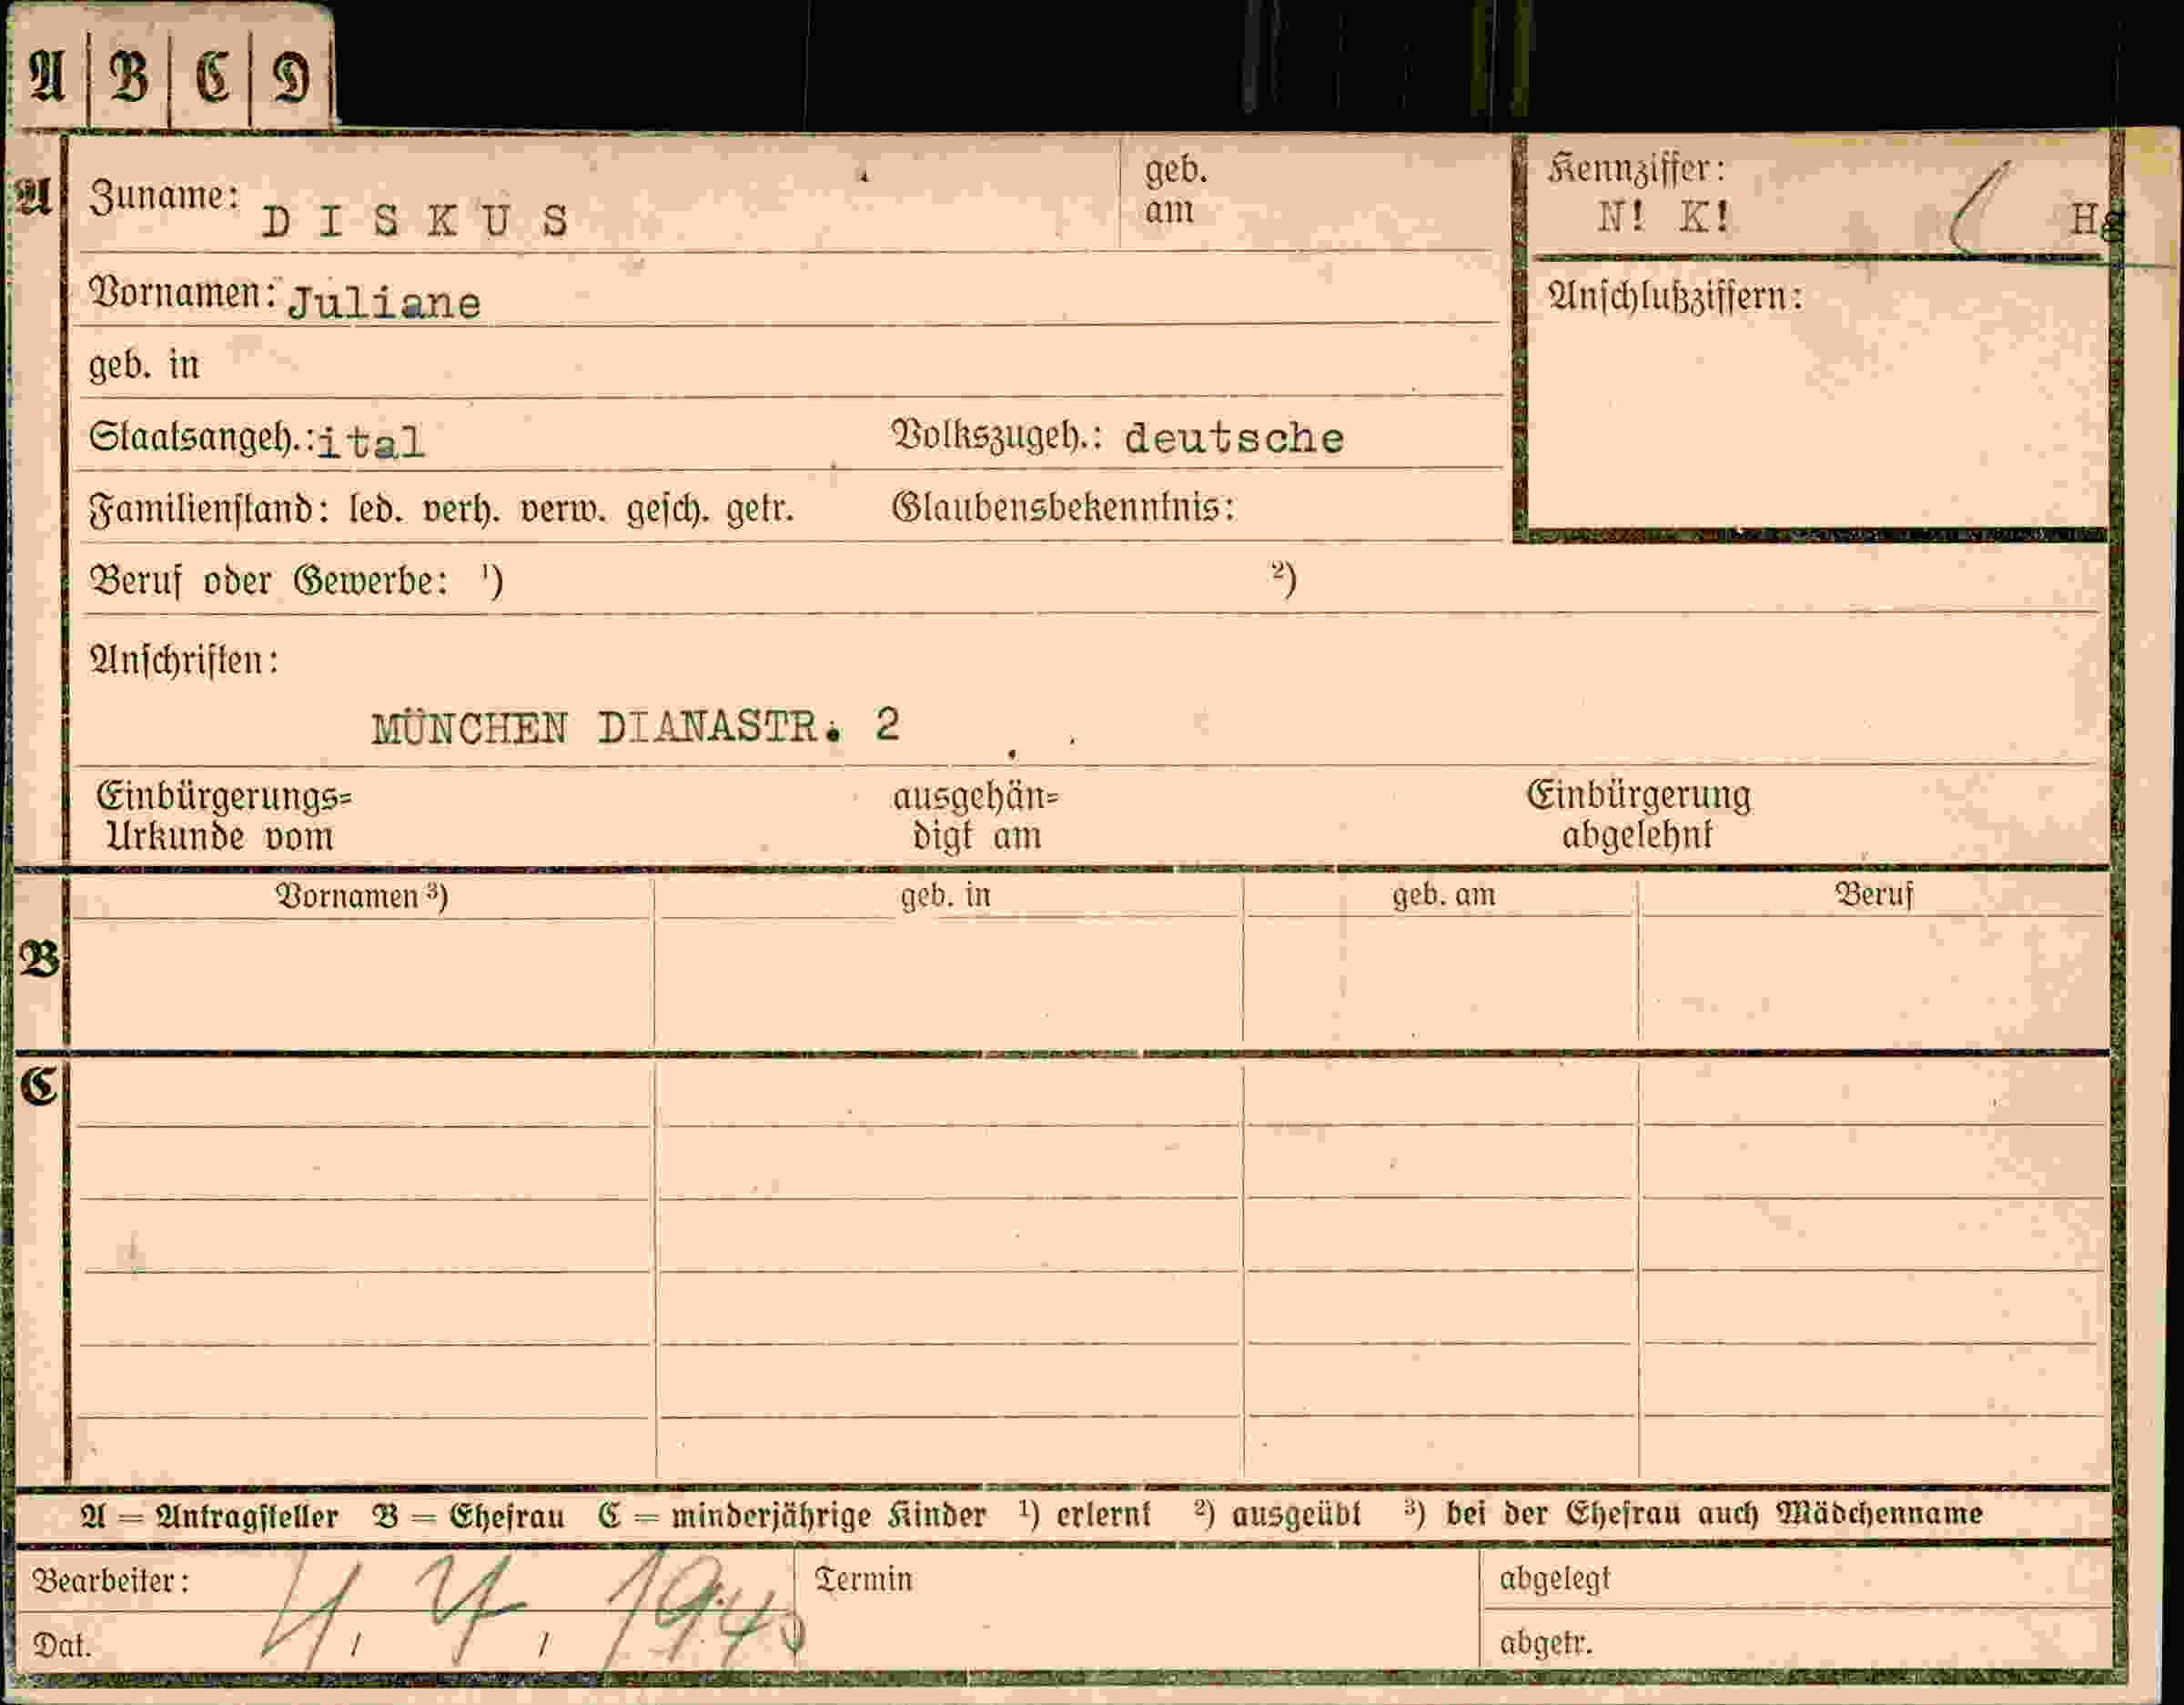 A B C D
A Zuname: DISKUS geb. am
Kennziffer: N! K! Hg
Vornamen: Juliane
Anschlußziffern:
geb. in
Staatsangeh.: ital Volkszugeh.: deutsche
Familienstand: led. verh. verw. gesch. getr. Glaubensbekenntnis:
Beruf oder Gewerbe: ¹) ²)
Anschriften:
MÜNCHEN DIANASTR. 2
Einbürgerungs= ausgehän= Einbürgerung
Urkunde vom digt am abgelehnt
Vornamen ³) geb. in geb. am Beruf
B
C
A = Antragsteller B = Ehefrau C = minderjährige Kinder ¹) erlernt ²) ausgeübt ³) bei der Ehefrau auch Mädchenname
Bearbeiter: Termin abgelegt
Dat. abgetr.